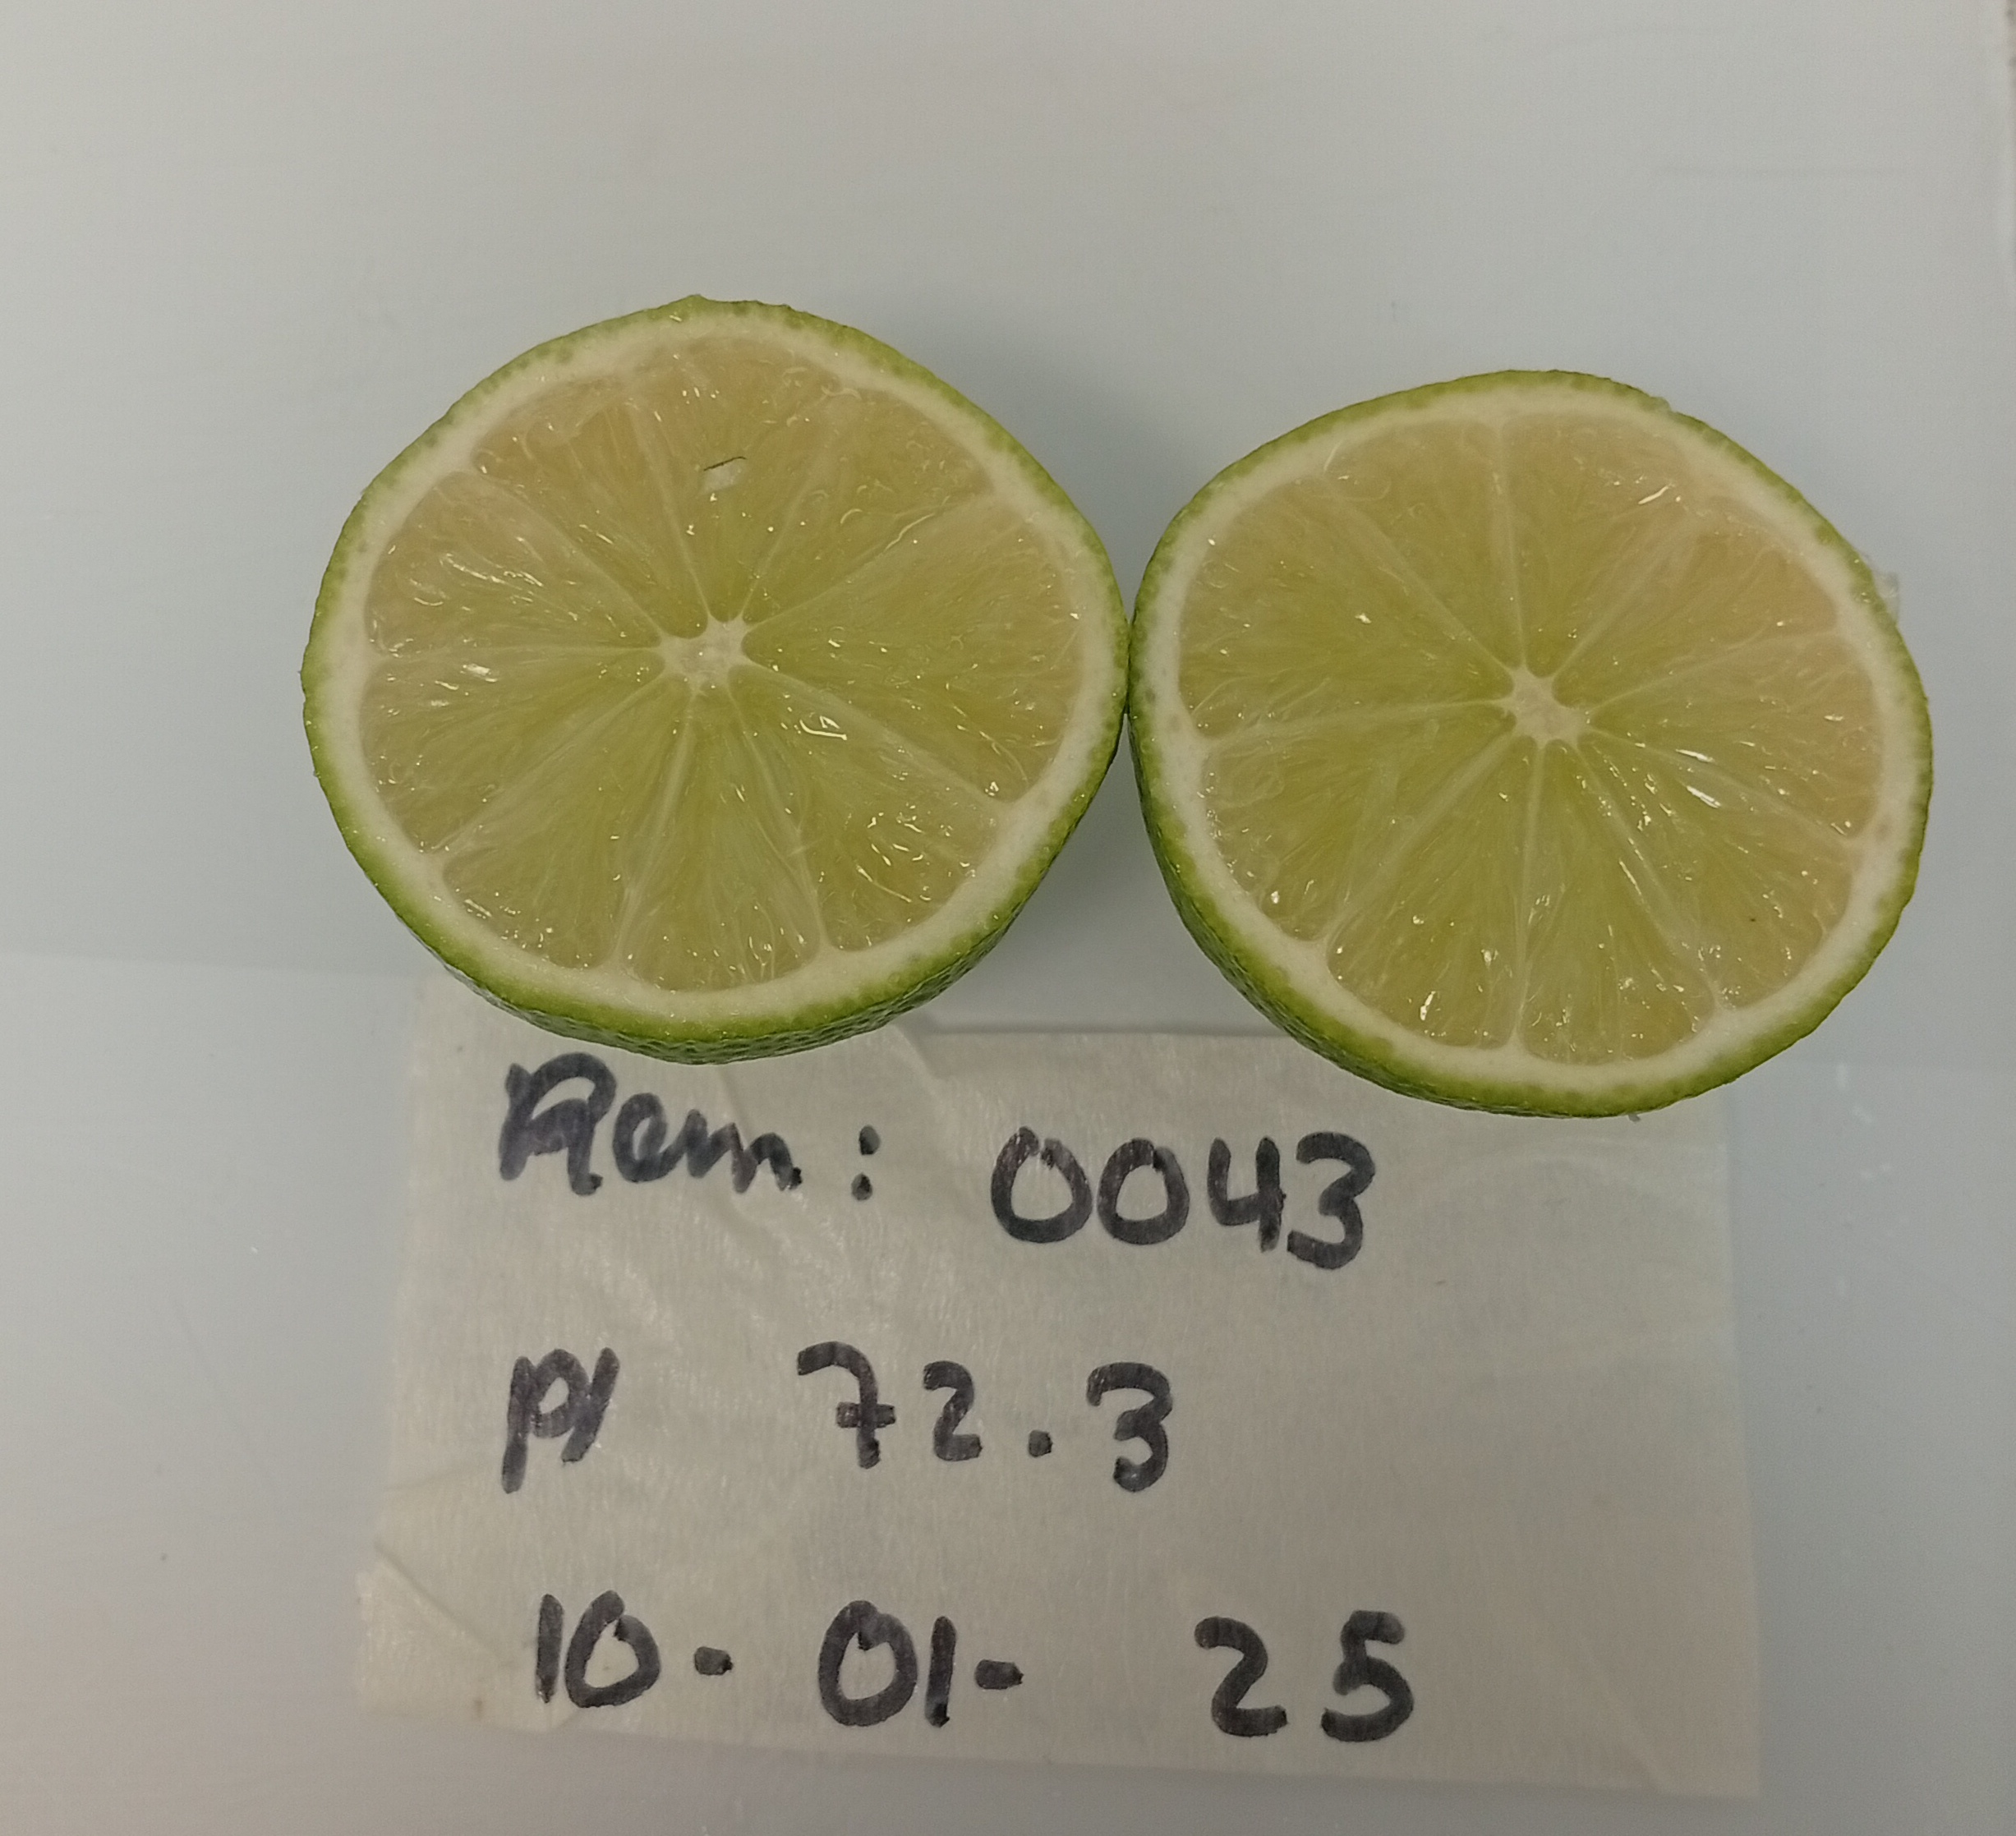 Rem: 0043
pl 72.3
10-01-25